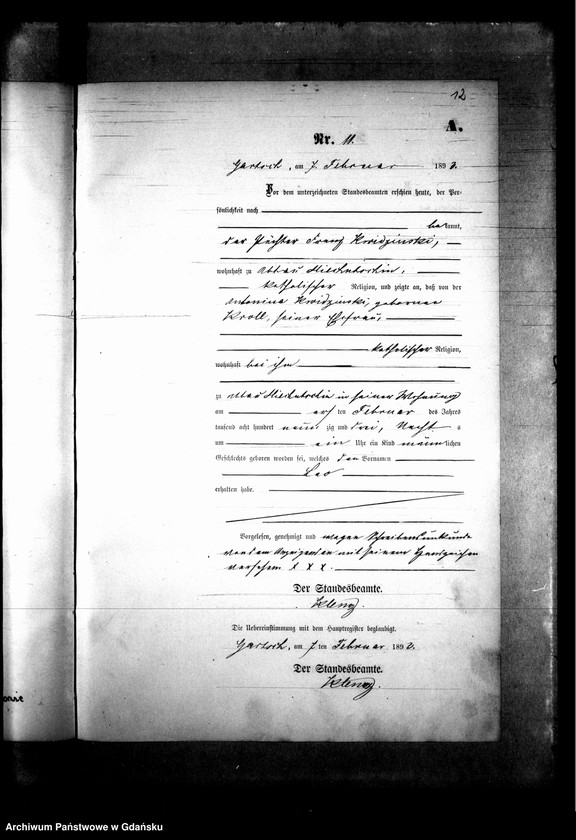 12
A.
Nr. 11.
am 7. Februar 1893.
Vor dem unterzeichneten Standesbeamten erschien heute, der Per-
sönlichkeit nach
bekannt,
der Pächter Franz Kwidzinski,
wohnhaft zu
katholischer Religion, und zeigte an, daß von der
Antonina Kwidzinski, geborenen
Kroll, seiner Ehefrau,
katholischer Religion,
wohnhaft bei ihm
zu in seiner Wohnung
am ersten Februar des Jahres
tausend acht hundert neunzig und drei, Nachts
um ein Uhr ein Kind männlichen
Geschlechts geboren worden sei, welches den Vornamen
Leo
erhalten habe.
Vorgelesen, genehmigt und wegen Schreibensunkunde
von dem Anzeigenden mit seinem Handzeichen
versehen x x x.
Der Standesbeamte.
Die Uebereinstimmung mit dem Hauptregister beglaubigt.
am 7ten Februar 1893.
Der Standesbeamte.
Archiwum Państwowe w Gdańsku